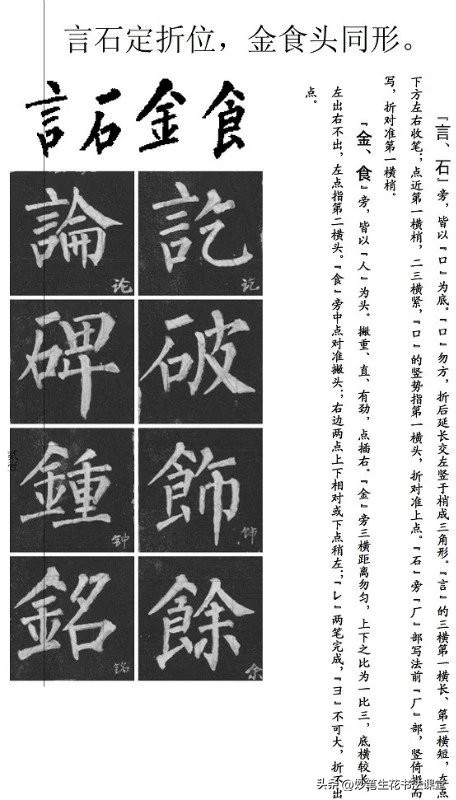 言石定折位，金食头同形。
言石金食
論 论 訖 讫
碑 破
鍾 钟 飾 饰
銘 铭 餘 余
『言、石』旁，皆以『口』为底。『口』勿方，折后延长交左竖于梢成三角形。『言』的三横第一横长、第三横短，左点
下方左右收笔；点近第一横梢，二三横紧，『口』的竖势指第一横头，折对准上点。『石』旁『厂』部写法前『厂』部，竖倚撇而
写，折对准第一横梢。
『金、食』旁，皆以『人』为头。撇重、直、有劲，点插右。『金』旁三横距离勿匀，上下之比为一比三，底横较长，
左出右不出，左点指第二横头。『食』旁中点对准撇头；右边两点上下相对或下点稍左；『レ』两笔完成，『ヨ』不可大，折不出
点。
头条 @妙笔生花书法课堂